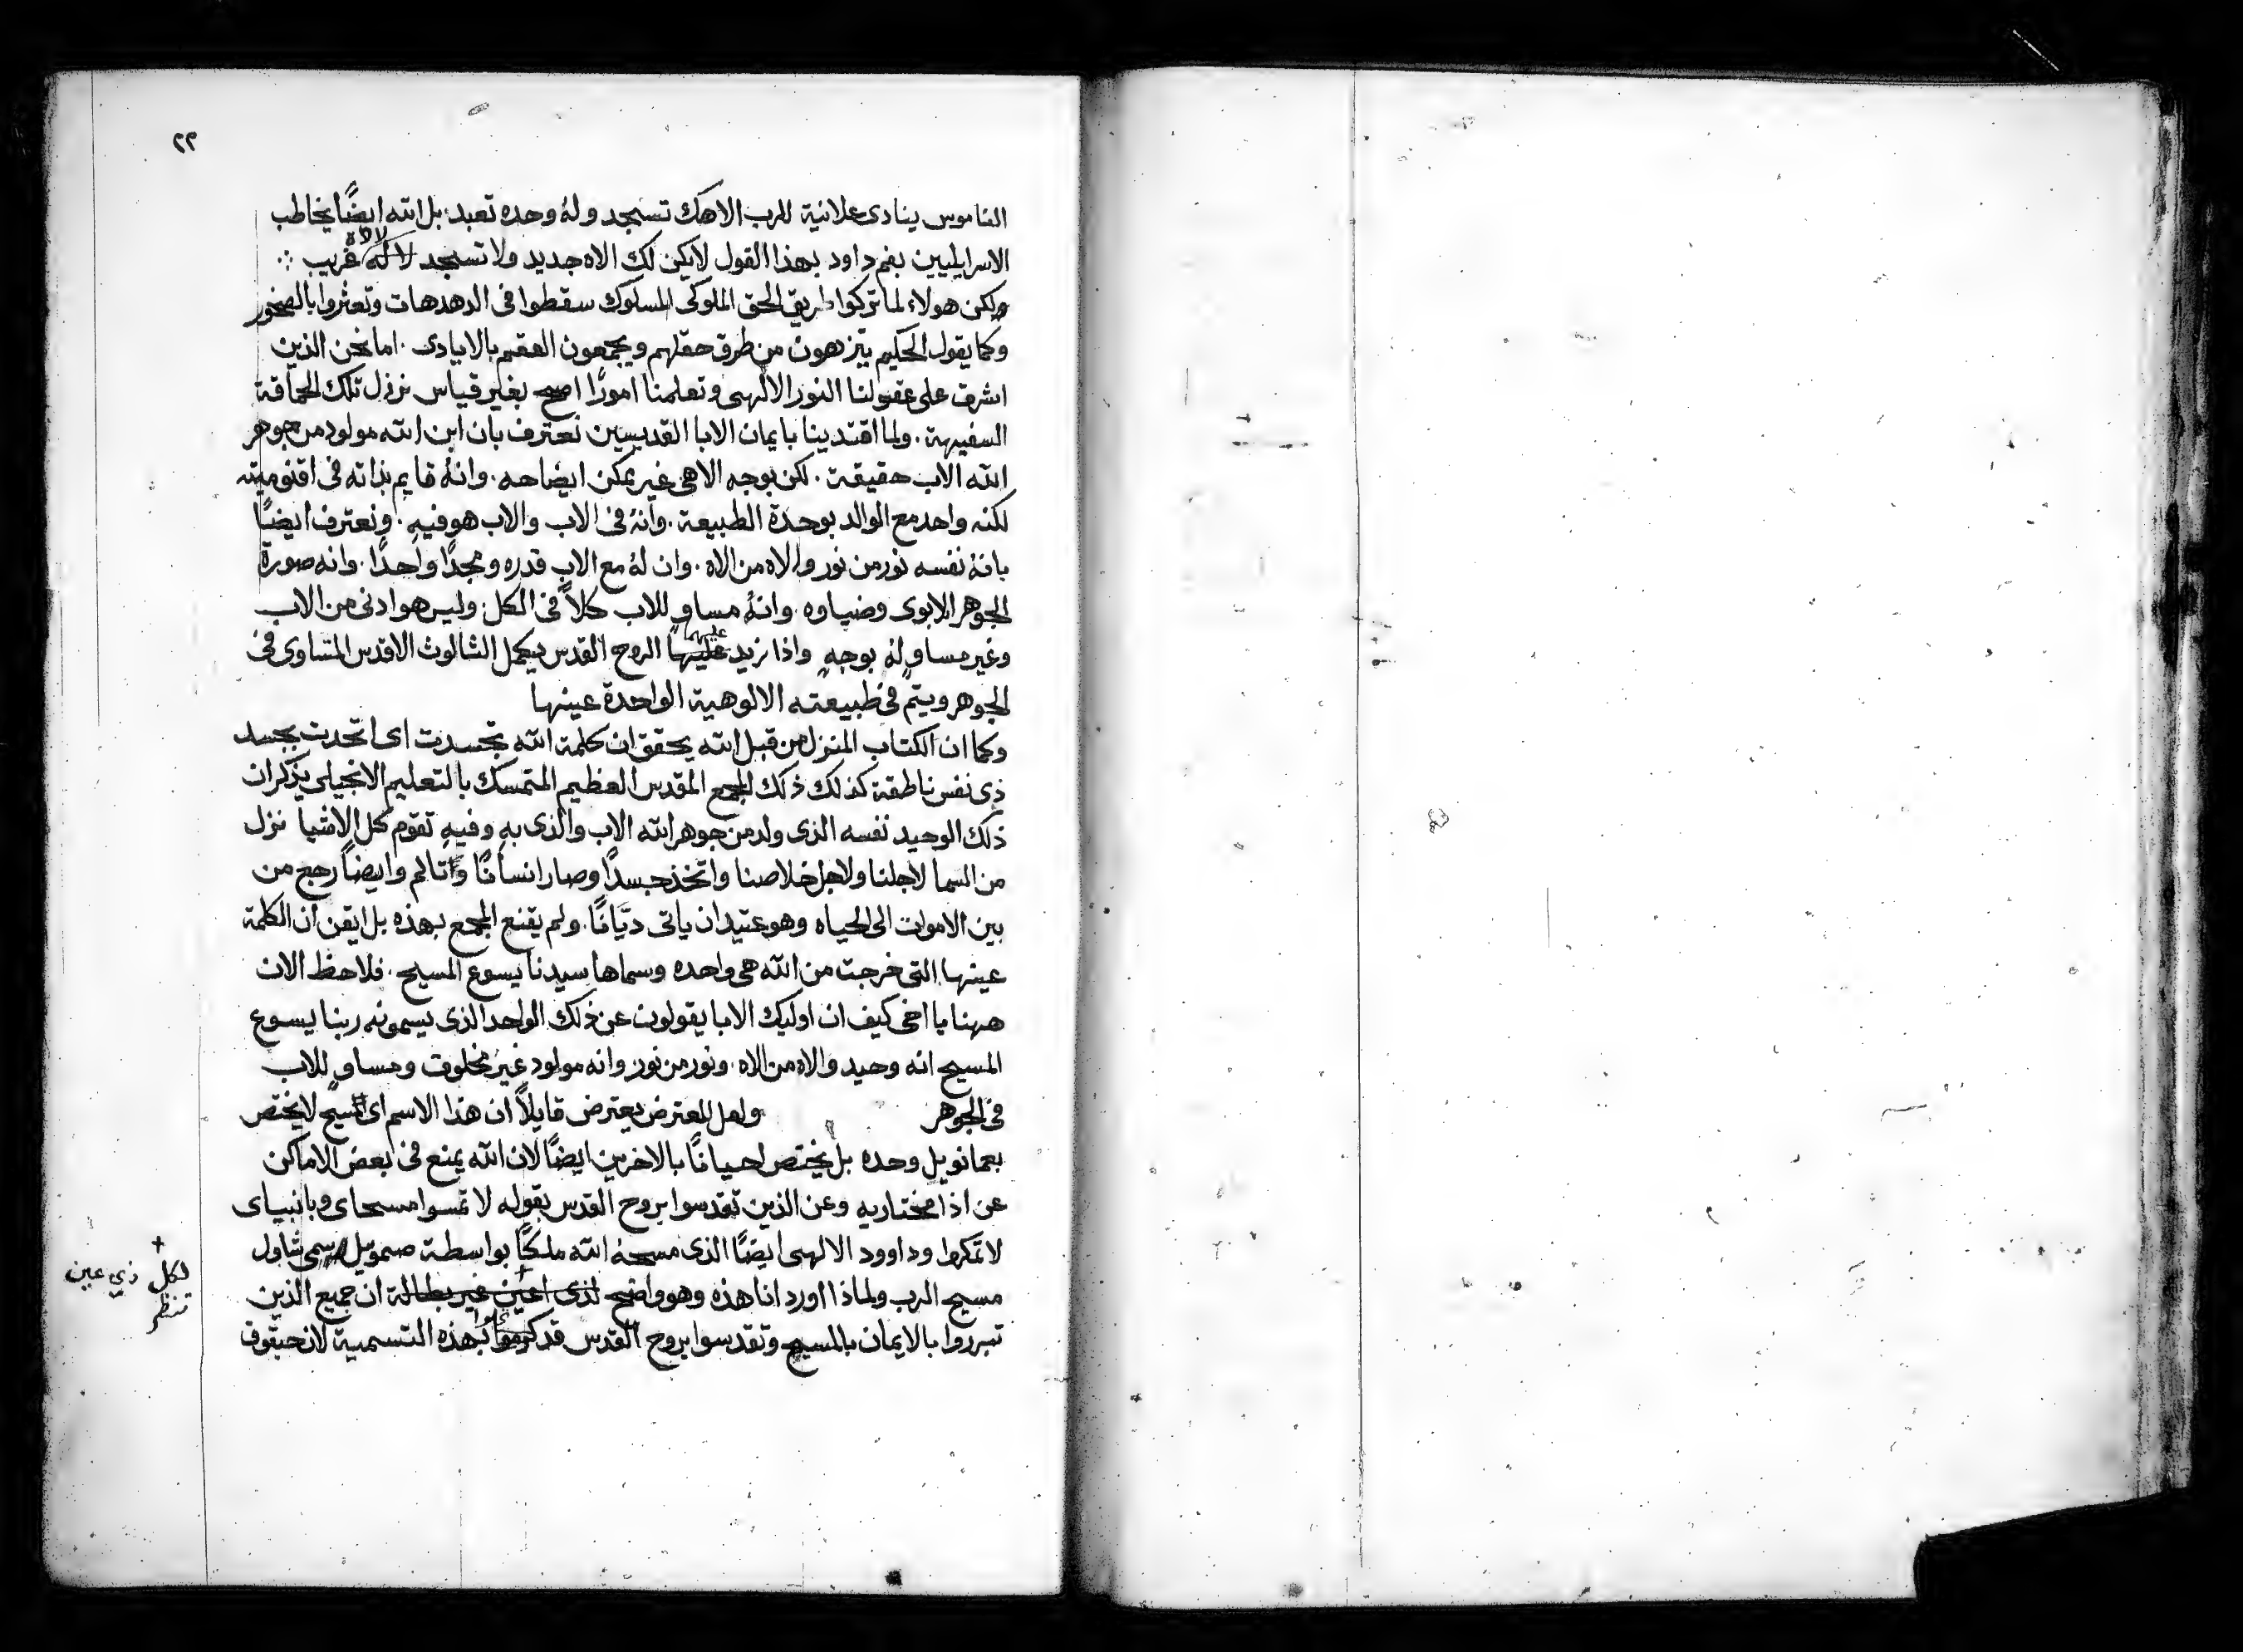 ٢٢
الناموس ينادى علانية للرب الاهك تسجد ولهُ وحده تعبد؛ بل الله ايضًا يخاطب
الاسرايليين بفم داود بهذا القول لا يكن لك الاه جديد ولا تسجد لالاه غريب
ولكن هولاء لما تركوا طريق الحق الملوكى المسلوك سقطوا فى الدهدهات وتعثروا بالصخور
وكما يقول الحكيم يتزهون من طرق حقلهم ويجمعون العقم بالايادى . اما نحن الذين
اشرق على عقولنا النور الالهى وتعلمنا امورًا اصح بغير قياس نرذل تلك الحماقة
السفيهة . ولما اقتدينا بايمان الابا القديسين نعترف بان ابن الله مولود من جوهر
الله الاب حقيقة . لكن بوجه الاهى غير يمكن ايضاحه . وانهُ قايم بذاته فى اقنوميته
لكنه واحد مع الوالد بوحدة الطبيعة . وانهُ فى الاب والاب هو فيهِ . ونعترف ايضًا
بانهُ نفسه نور من نور والاه من الاه . وان لهُ مع الاب قدره ومجدًا واحدًا . وانه صورة
الجوهر الابوى وضياوه . وانهُ مساوٍ للاب كلاً فى الكل : وليس هو ادنى من الاب
وغير مساوٍ لهُ بوجهٍ واذا نزيد عليهما الروح القدس يكمل الثالوث الاقدس المتساوى فى
الجوهر ويتم فى طبيعته الالوهية الواحدة عينها
وكما ان الكتاب المنزل من قبل الله يحقق ان كلمة الله تجسدت اى اتحدت بجسد
ذى نفس ناطقة كذلك ذلك المجمع المقدس العظيم المتمسك بالتعليم الانجيلى يذكر ان
ذلك الوحيد نفسه الذى ولد من جوهر الله الاب والذى بهِ وفيهِ تقوم كل الاشيا نزل
من السما لاجلنا ولاجل خلاصنا واتخذ جسدًا وصار انسانًا وتالم وايضاً رجع من
بين الاموات الى الحياه وهو عتيد ان ياتى ديّانًا . ولم يقنع المجمع بهذه بل ايقن ان الكلمة
عينها التى خرجت من الله هى واحده وسماها سيدنا يسوع المسيح . فلاحظ الان
ههنا يا اخى كيف ان اوليك الابا يقولون عن ذلك الواحد الذى يسمونه ربنا يسوع
المسيح انه وحيد والاه من الاه . ونور من نور وانه مولود غير مخلوق ومساوٍ للاب
فى الجوهر ولعل المعترض يعترض قايلاً ان هذا الاسم اى المسيح لا يختص
بعمانويل وحده بل يختص احيانًا بالاخرين ايضًا لان الله يمنع فى بعض الاماكن
عن اذا مختاريه وعن الذين تقدسوا بروح القدس بقوله لا تمسوا مسحاى وبانبياى
لا تمكروا وداوود الالهى ايضًا الذى مسحهُ الله ملكًا بواسطة صموييل سمى شاول
مسيح الرب ولماذا اورد انا هذه وهو واضح لذى اعين غير بطالة ان جميع الذين
تبرروا بالايمان بالمسيح وتقدسوا بروح القدس قد كرموا بهذه التسمية لان حبقوق
+
لكل ذي عين
تنظر